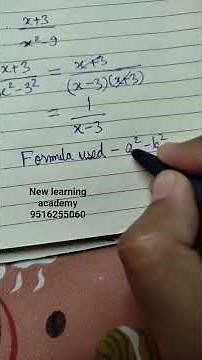 x+3
x²-9
x+3 = x+3
x²-3² (x-3)(x+3)
= 1
x-3
Formula used - a²-b²
New learning
academy
9516255060